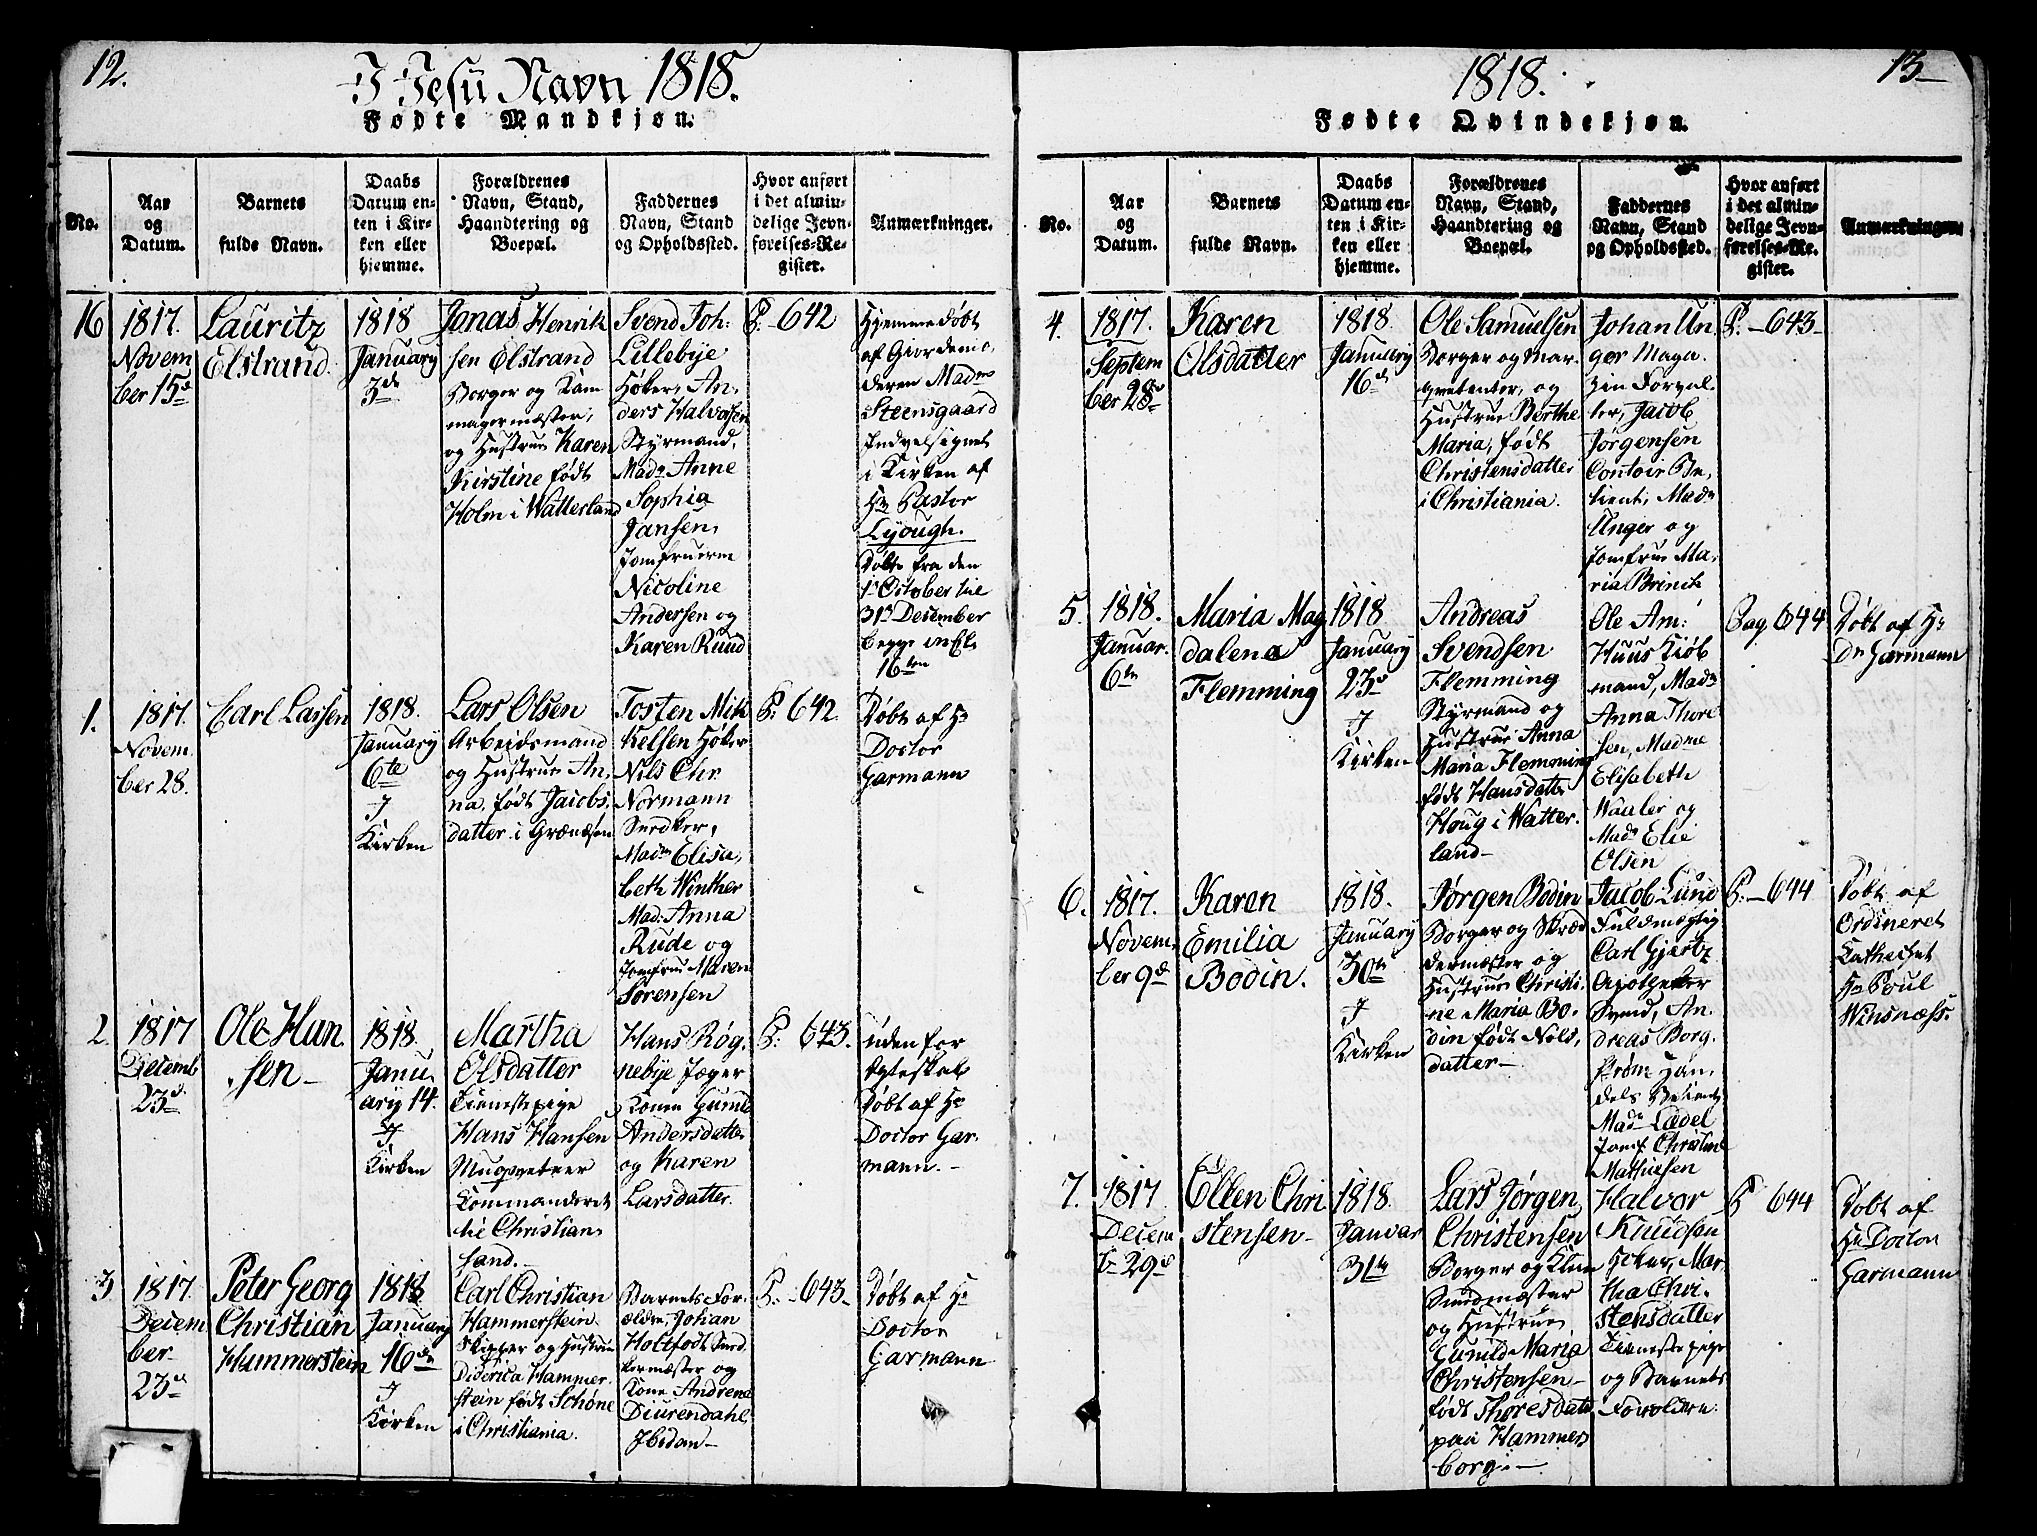 12.
I Jesu Navn 1818.
Fødte Mandkjøn.
No.
Aar
og
Datum.
Barnets
fulde Navn.
Daabs
Datum en-
ten i Kir-
ken eller
hjemme.
Forældrenes
Navn, Stand,
Haandtering og
Boepæl.
Faddernes
Navn, Stand
og Opholdssted.
Hvor anført
i det almin-
delige Jevn-
førelses-Re-
gister.
Anmærkninger.
16
1817.
Novem
ber 15d
Lauritz
Elstrand.
1818
January
3de
Jonas Henrik
sen Elstrand
Borger og Kam
magermester,
og Hustrue Karen
Kirstine født
Holm i Watterland
Svend Joh:
Lillebye
Høker, An,
ders Halvorsen
Styrmand,
Mad. Anne
Sophia
Jansen,
Jomfruerne
Nicoline
Andersen og
Karen Ruud
P. 642
Hjemmedøbt
af Giordemo,
deren Madme
Steensgaard
Indvelsignet
i Kirken af
Hr Pastor
Lyough.
Døbte fra den
1. October til
31te December
begge inkl.
16ten
1.
1817.
Novem
ber 28.
Carl Larsen
1818.
January
6te
I
Kirken
Lars Olsen
Arbeidsmand
og Hustrue An,
na, født Jacobs,
datter i Grændsen
Tosten Mik
kelsen Høker
Nils Chr
Normann
Snedker,
Madm Elisa,
beth Winther
Mad. Anna
Rude og
Jomfrue Maren
Sørensen
P. 642.
Døbt af Hr
Doctor
Garmann
2.
1817
Decemb
23d
Ole Han
sen
1818.
Janu,
ary 14.
I
Kirken
Martha
Olsdatter
Tienestepige
Hans Hansen
Musqveteer
Kommanderet
til Christian,
sand.
Hans Røg,
nebye Jæger
Konen Gunild
Andersdatter
og Karen
Larsdatter.
P. 643.
uden for
Ægteskab
Døbt af Hr
Doctor Gar,
mann.
3
1817.
Decem
ber
23d
Peter Georg
Christian
Hammerstein
1818
January
16de
I
Kirken
Carl Christian
Hammerstein
Skipper og Hustrue
Diderica Hammer,
stein født Schøne
i Christiania.
Barnets For,
ældre, Johan
Holtfodt Sned
kermester og
Kone Andrena
Diurendahl
Ibidem
P. 643
Døbt af Hr
Doctor
Garmann
13
1818.
Fødte Qvindekjøn.
No.
Aar
og
Datum.
Barnets
fulde Navn.
Daabs
Datum en-
ten i Kir-
ken eller
hjemme.
Forældrenes
Navn, Stand,
Haandtering og
Boepæl.
Faddernes
Navn, Stand
og Opholdssted.
Hvor anført
i det almin-
delige Jevn-
førelses-Re-
gister.
Anmærkninger.
4.
1817.
Septem
ber 28d
Karen
Olsdatter
1818.
January
16d
Ole Samuelsen
Borger og Mar,
qvetenter, og
Hustrue Berthe
Maria, født
Christensdatter
i Christiania.
Johan Un
ger Maga,
zin Forval,
ter, Jacob
Jørgensen
Contoir Be,
tient, Madm
Unger og
Jomfrue Ma,
ria Brinck
P. 643
5.
1818.
Januar.
6te
Maria Mag
dalena
Flemming
1818
January
23d
I
Kirken
Andreas
Svendsen
Flemming
Styrmand og
Hustrue Anna
Maria Flemming
født Hansdatter
Houg i Watter,
land
Ole Am:
Huus Kiøb
mand, Madm
Anna Thore
sen, Madme
Elisabeth
Waaler og
Madm Elie
Olsen
Pag 644
Døbt af Hr
Dr Garmann
6.
1817.
Novem,
ber 9d
Karen
Emilia
Bodin.
1818.
January
30te
I
Kirken
Jørgen Bodin
Borger og Skræd
dermester og
Hustrue Christi,
ne Maria Bo,
din født Nels,
datter
Jacob Lund
Fuldmægtig
Carl Gjertz
Apotheker
Svend, An,
dreas Borg,
strøm Han,
dels Betient
Madm Lædel
Jomf. Christine
Mathiesen
P. 644
Døbt af
Ordineret
Kathechet
Hr Poul
Winsnæss.
7.
1817
Decem
br 29d
Ellen Chri
stensen
1818.
Januar
31te
Lars Jørgen
Christensen
Borger og Klein
Smedmester
og Hustrue
Gunild Maria
Christensen
født Thoresdatter
paa Hammers
borg.
Halvor
Knudsen
Høker, Mar
tha Chri,
stensdatter
Tienestepige
og Barnets
Forældre.
P 644
Døbt af
Hr Doctor
Garmann